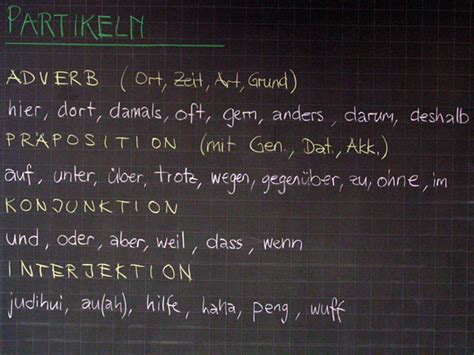 PARTIKELN
ADVERB (Ort, Zeit, Art, Grund)
hier, dort, damals, oft, gern, anders, darum, deshalb
PRÄPOSITION (mit Gen., Dat., Akk.)
auf, unter, über, trotz, wegen, gegenüber, zu, ohne, im
KONJUNKTION
und, oder, aber, weil, dass, wenn
INTERJEKTION
judihui, au(ah), hilfe, haha, peng, wuff